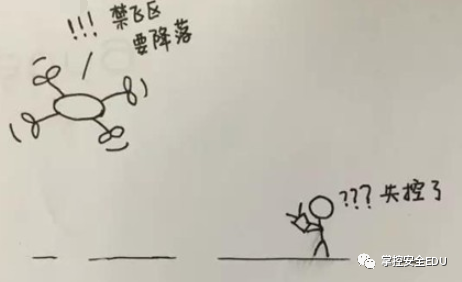 !!! 禁飞区
要降落
??? 失控了
掌控安全EDU